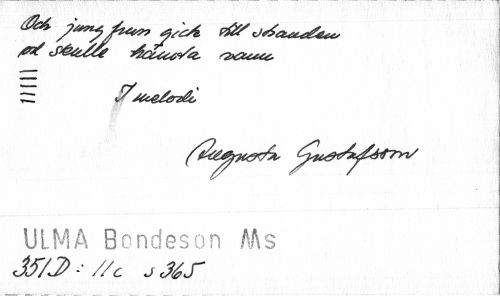 Och jungfrun gick till stranden
od skulle hämta vann
I melodi
Augusta Gustafsson
ULMA Bondeson Ms
351D : 11c s 365